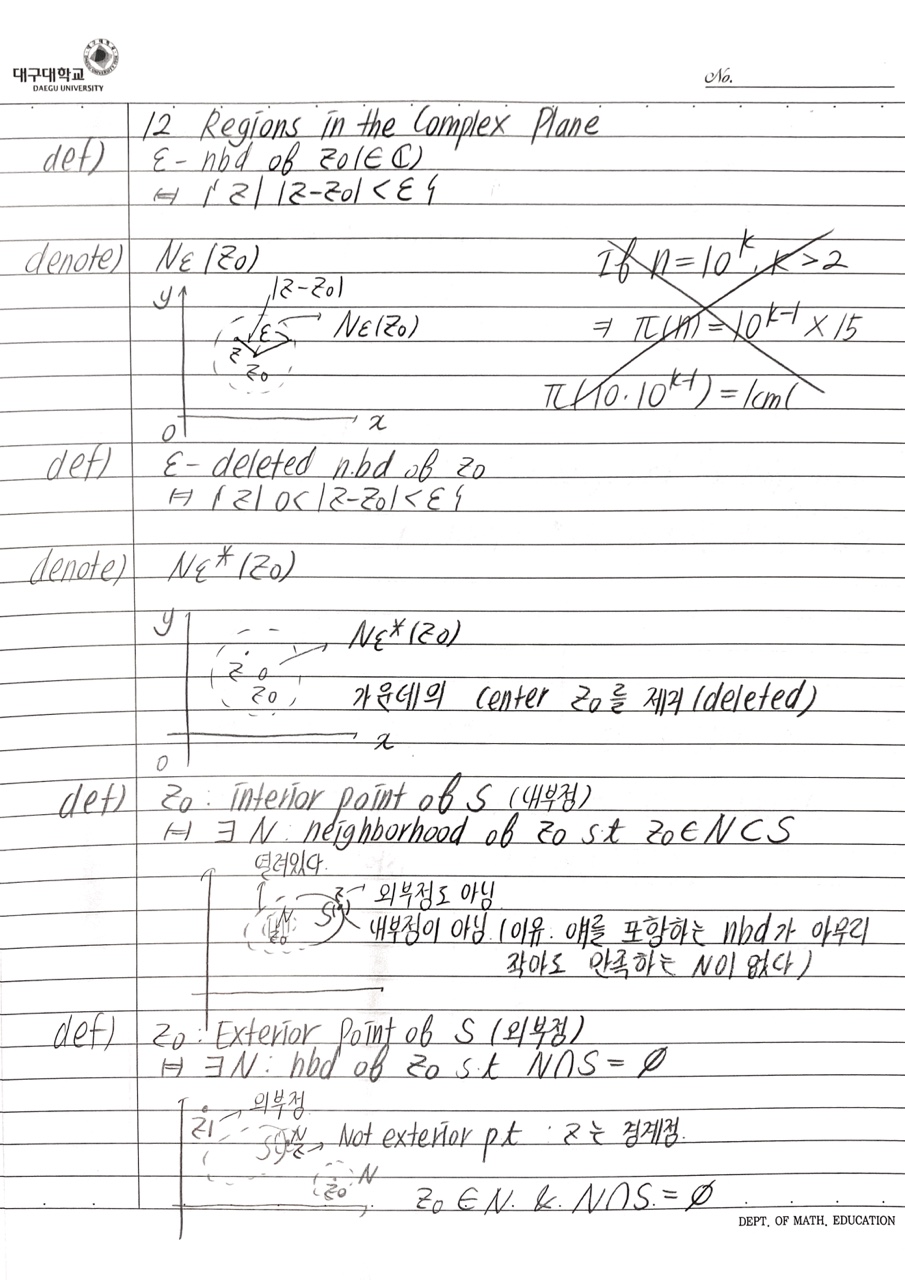 대구대학교
DAEGU UNIVERSITY
No.
12 Regions in the Complex Plane
def) ε- nbd of z0(∈ℂ)
⇔ {z| |z-z0|<ε}
denote) Nε(z0)
If n=10^k, k>2
y |z-z0|
ε Nε(z0)
z
z0
⇒ π(n)=10^{k-1}×15
x
0
def) ε- deleted nbd of z0
⇔ {z| 0<|z-z0|<ε}
denote) Nε*(z0)
y Nε*(z0)
z
z0 가운데의 center z0를 제외(deleted)
x
0
def) z0: interior point of S (내부점)
⇔ ∃N: neighborhood of z0 s.t z0∈N⊂S
열려있다.
N S z 외부점도 아님
내부점이 아님. (이유. 얘를 포함하는 nbd가 아무리
작아도 만족하는 N이 없다)
def) z0: Exterior Point of S (외부점)
⇔ ∃N: nbd of z0 s.t N∩S=∅
z1 외부점
S N z Not exterior pt : z는 경계점.
z0 N
z0∈N. & N∩S.=∅
DEPT. OF MATH. EDUCATION